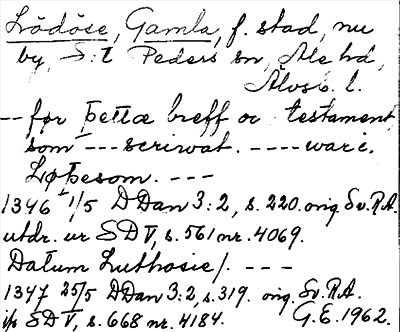 Lödöse, Gamla, f. stad, nu
by, S:t Peders sn, Ale hd,
Älvsb. l.
-- før þettæ breff oc testament
som --- scriwat. ---- war i.
Løþesom. ---
1346 1/5 DDan 3:2, s. 220. orig. Sv.R.A.
utdr. ur SD V, s. 561 nr. 4069.
Datum Luthosie/. ---
1347 25/5 DDan 3:2, s. 319. orig. Sv. R.A.
SD V, s. 668 nr. 4184. G.E. 1962.